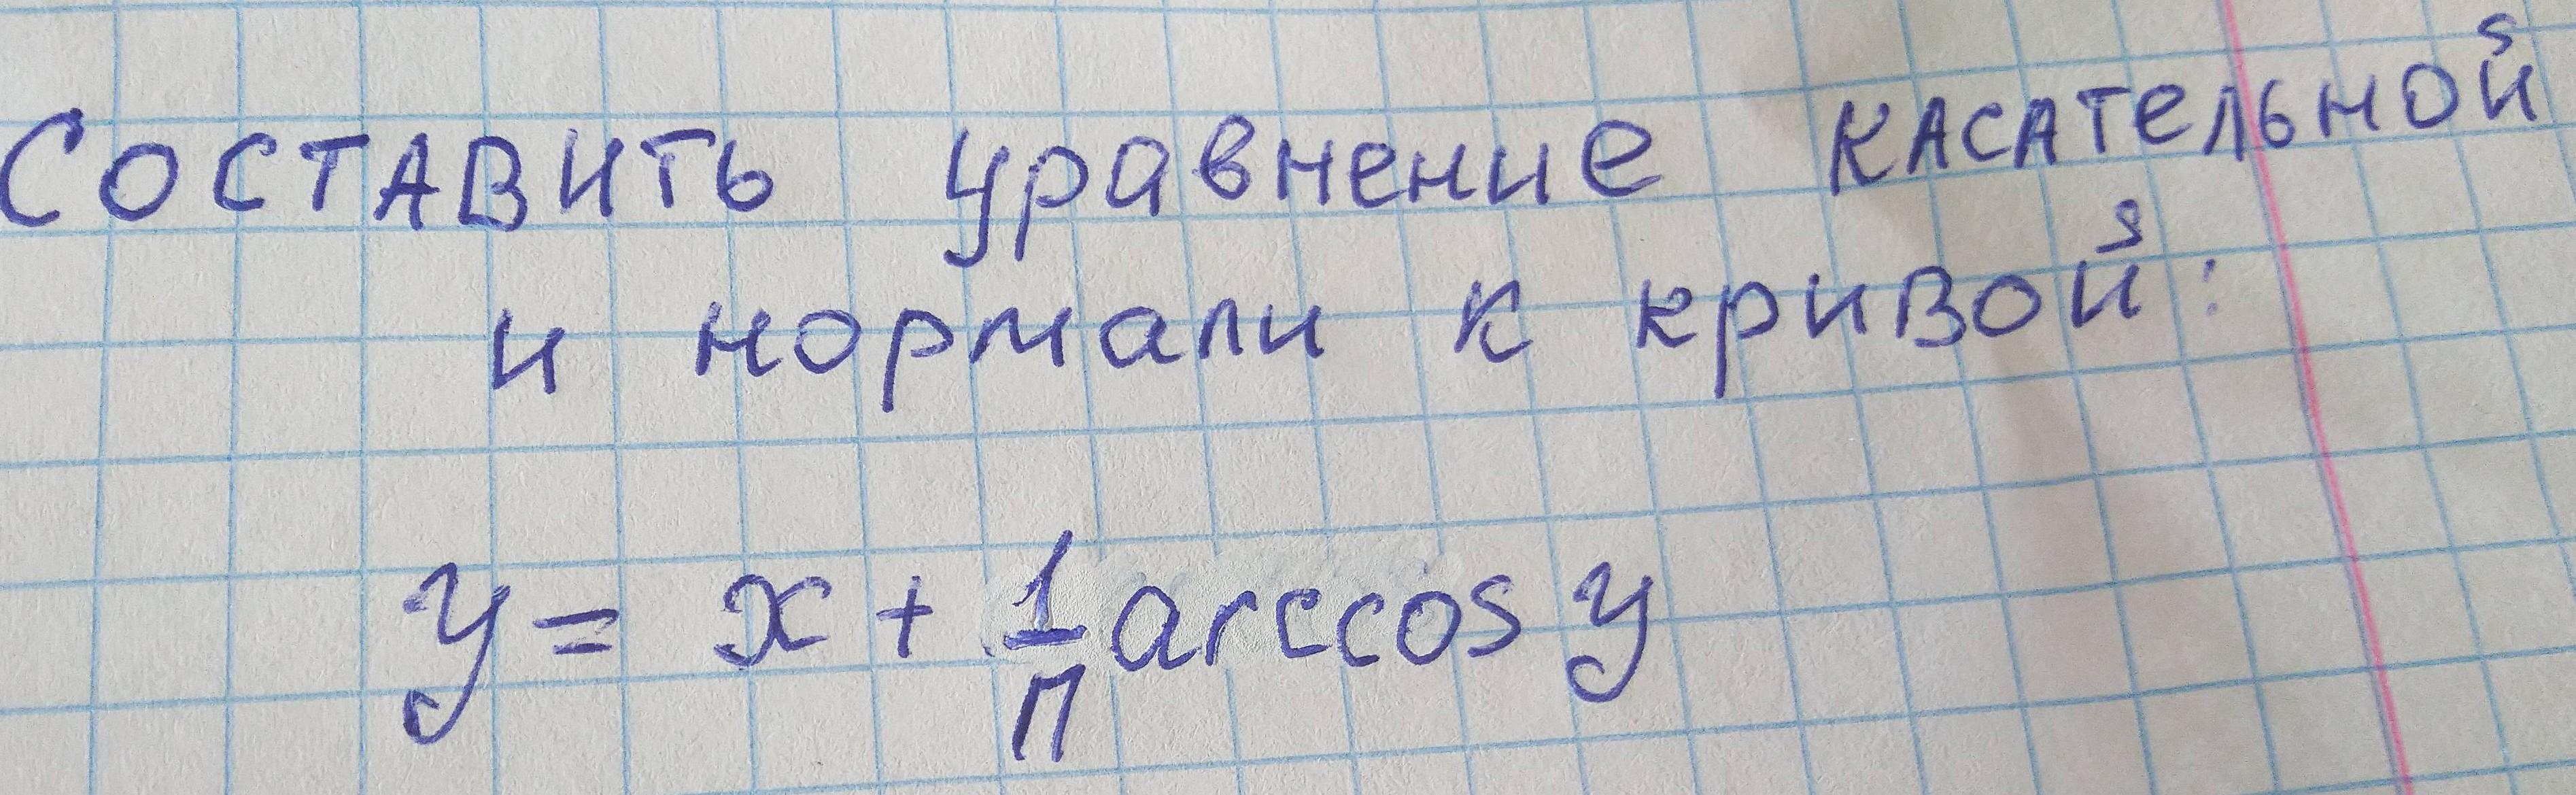 Составить уравнение касательной
и нормали к кривой:
y = x + 1/π arccos y